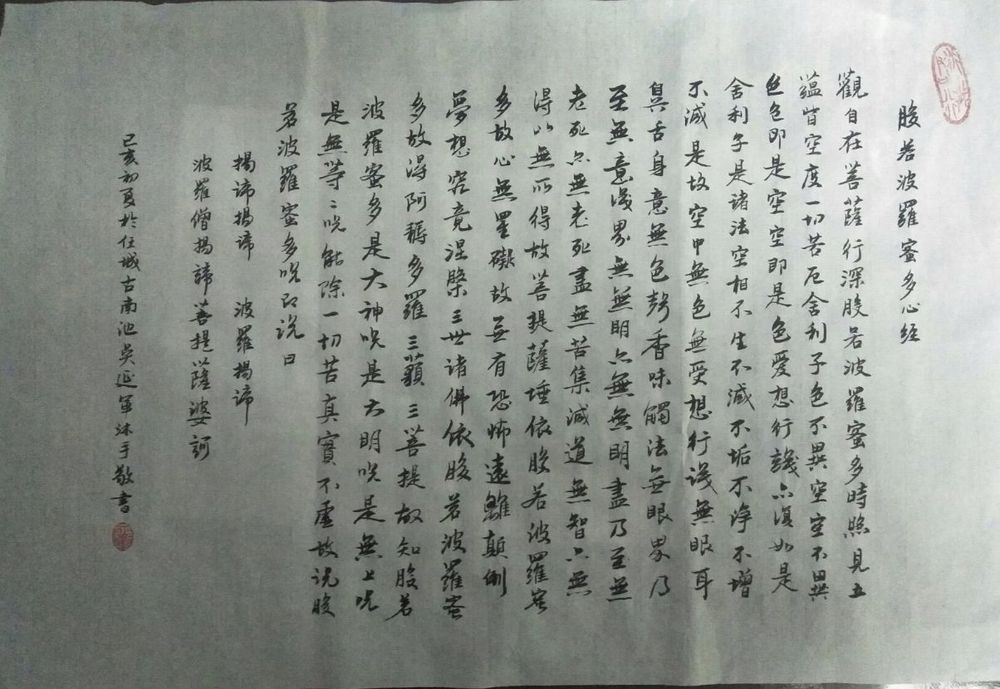 般若波羅蜜多心經
觀自在菩薩行深般若波羅蜜多時照見五
蘊皆空度一切苦厄舍利子色不異空空不異
色色即是空空即是色受想行識亦復如是
舍利子是諸法空相不生不滅不垢不淨不增
不減是故空中無色無受想行識無眼耳
鼻舌身意無色聲香味觸法無眼界乃
至無意識界無無明亦無無明盡乃至無
老死亦無老死盡無苦集滅道無智亦無
得以無所得故菩提薩埵依般若波羅蜜
多故心無罣礙故無有恐怖遠離顛倒
夢想究竟涅槃三世諸佛依般若波羅蜜
多故得阿耨多羅三藐三菩提故知般若
波羅蜜多是大神咒是大明咒是無上咒
是無等〻咒能除一切苦真實不虛故說般
若波羅蜜多咒即說曰
揭諦揭諦 波羅揭諦
波羅僧揭諦菩提薩婆訶
己亥初夏於任城古南池吳延軍沐手敬書